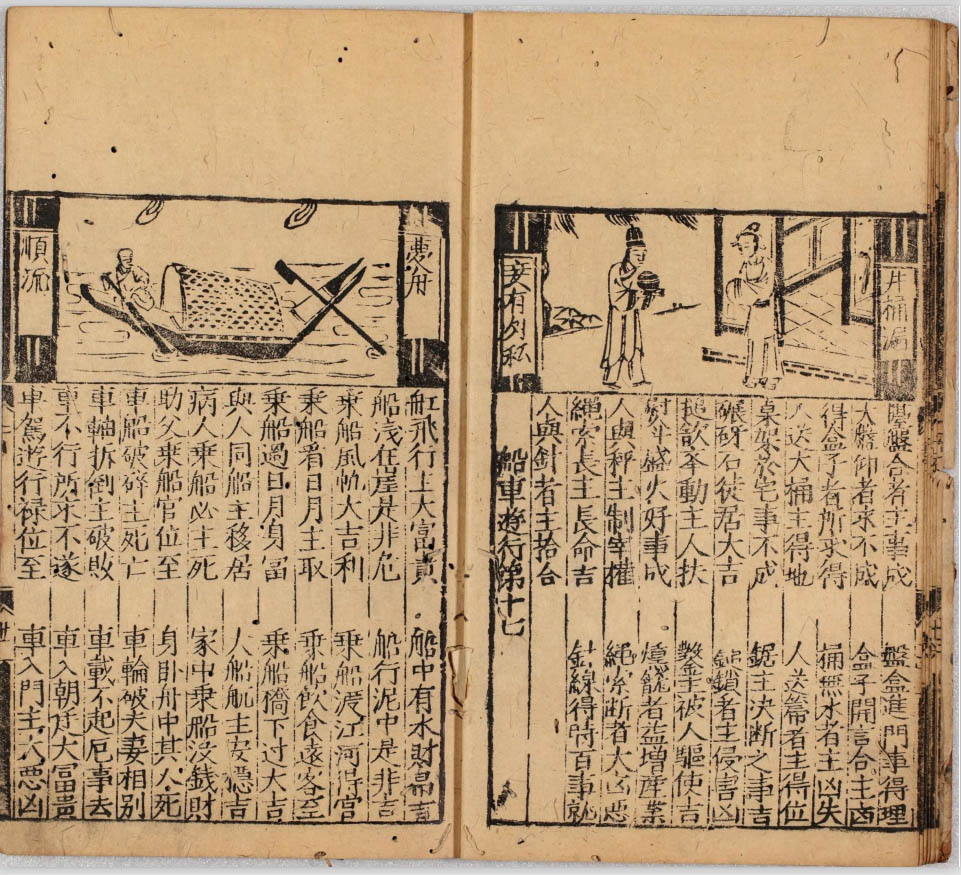 井桶漏
妾有外私
盤合者主事成 盤盒進門事得理
大盤仰者求不成 盒子開言合主凶
得盒子者所求得 桶無水者主凶失
人送大桶主得地 人送箒者主得位
桌架於宅事不成 鋸主決斷之事吉
碾砑石徒居大吉 鎖者主侵害凶
動主人扶 主被人驅使吉
火好事成 籠者益增產業
人與秤主制宰權 繩索断者大凶惡
繩索長主長命吉 針線得時百事就
人與針者主拾合
船車遊行第十七
夢舟
順流
舡飛行上大富貴 船中有水財帛吉
船浅在崖是非危 船行泥中是非吉
乘船風帆大吉利 乘船渡江河得官
乘船看日月主取 乘船飲食遠客至
乘船過日月身富 乘船橋下过大吉
與人同船主移居 人船舤主安穩吉
病人乘船必主死 家中乘船沒錢財
助父乘船官位至 身卧舟中其人死
車船破碎主死亡 車輪破夫妻相別
車軸拆倒主破敗 車載不起厄事去
車不行所求不遂 車入朝廷大冨貴
車駕遊行禄位至 車入門主大惡凶